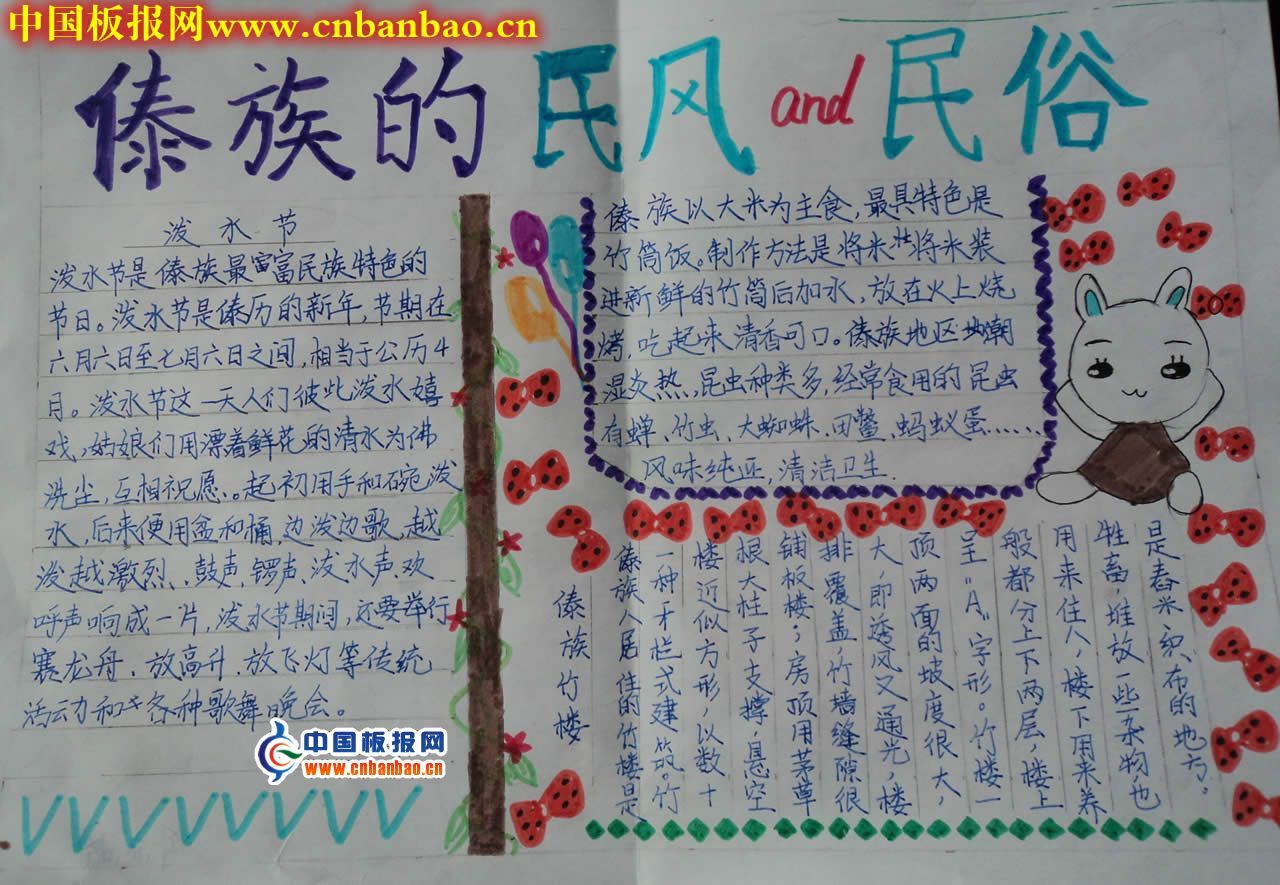 中国板报网www.cnbanbao.cn
傣族的民风and民俗
泼水节
泼水节是傣族最富富民族特色的
节日。泼水节是傣历的新年,节期在
六月六日至七月六日之间,相当于公历4
月。泼水节这一天人们彼此泼水嬉
戏,姑娘们用漂着鲜花的清水为佛
洗尘,互相祝愿、。起初用手和碗泼
水,后来便用盆和桶,边泼边歌,越
泼越激烈、、鼓声、锣声、泼水声、欢
呼声响成一片,泼水节期间,还要举行
赛龙舟、放高升、放飞灯等传统
活动和各种歌舞晚会。
傣族以大米为主食,最具特色是
竹筒饭。制作方法是将米将米装
进新鲜的竹筒后加水,放在火上烧
烤,吃起来清香可口。傣族地区潮
湿炎热,昆虫种类多,经常食用的昆虫
有蝉、竹虫、大蜘蛛、田鳖、蚂蚁蛋......
风味纯正,清洁卫生.
傣族竹楼
傣族人居住的竹楼是
一种干栏式建筑。竹
楼近似方形,以数十
根大柱子支撑,悬空
铺板楼;房顶用茅草
排覆盖,竹墙缝隙很
大,即透风又通光,楼
顶两面的坡度很大,
呈"A"字形。竹楼一
般都分上下两层,楼上
用来住人,楼下用来养
牲畜,堆放一些杂物也
是舂米织布的地方。
中国板报网
www.cnbanbao.cn